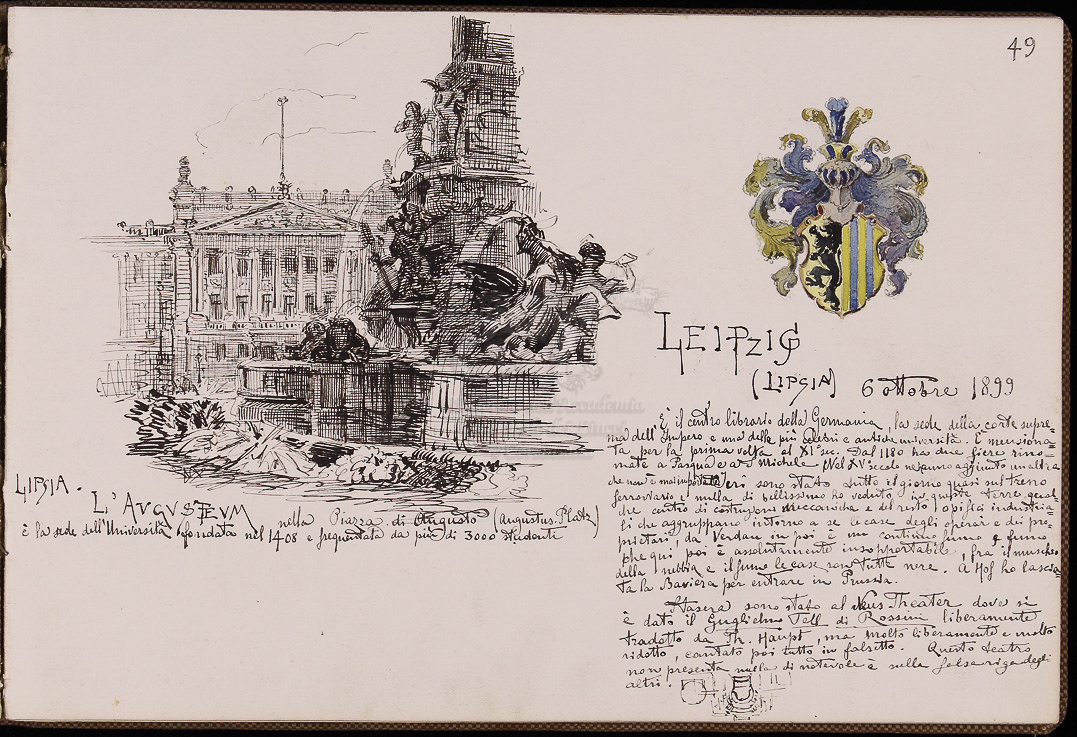 49
LEIPZIG
(LIPSIA) 6 ottobre 1899
È il centro librario della Germania, la sede della corte supre=
ma dell'Impero e una delle più celebri e antiche università. È menziona=
ta per la prima volta al XI sec. Dal 1180 ha due fiere rino=
mate a Pasqua e a S. Michele. Nel XV secolo ne hanno aggiunto un altra
che non è mai importante. Ieri sono stato tutto il giorno quasi sul treno
ferroviario e nulla di bellissimo ho veduto in queste terre qual=
che centro di costruzioni meccaniche e del resto opifici industria=
li che aggruppano intorno a se le case degli operai e dei pro=
prietari, da Verdau in poi è un continuo fumo e fumo
che qui poi è assolutamente insopportabile, fra il muschio
della nebbia e il fumo le case son tutte nere. A Hof ho lascia=
ta la Baviera per entrare in Prussia.
Stasera sono stato al Neus Theater dove si
è dato il Guglielmo Tell di Rossini liberamente
tradotto da Th. Haupt, ma molto liberamente e molto
ridotto, cantato poi tutto in falsetto. Questo teatro
non presenta nulla di notevole è sulla falsa riga degli
altri.
LIPSIA. L'AVGVSTEVM nella Piazza di Augusto (Augustus-Platz)
è la sede dell'Università fondata nel 1408 e frequentata da più di 3000 studenti